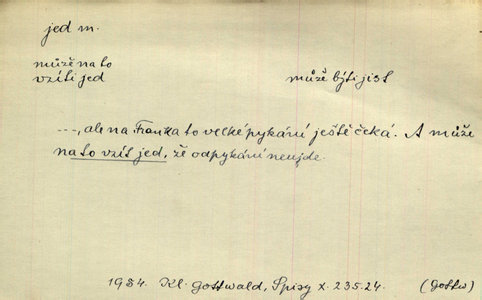 jed m.
může na to
vzíti jed
může býti jist
---, ale na Franka to velké pykání ještě čeká. A může
na to vzít jed, že odpykání neujde.
1934. Kl. Gottwald, Spisy X. 235.24. (Gottw)